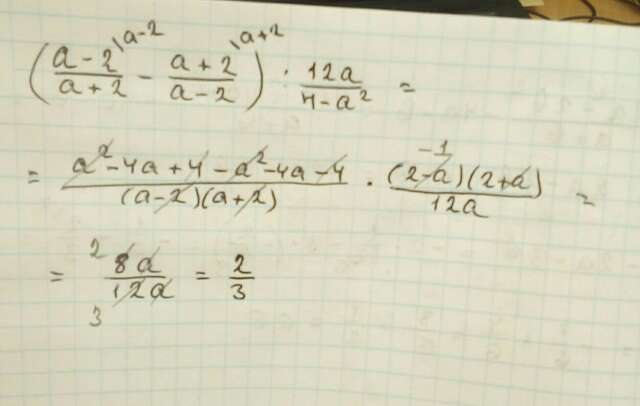 (a-2/a+2 \a-2 - a+2/a-2 \a+2) : 12a/4-a² =
= a²-4a+4-a²-4a-4/(a-2)(a+2) · -1 (2-a)(2+a)/12a =
= 2 8a/12a 3 = 2/3